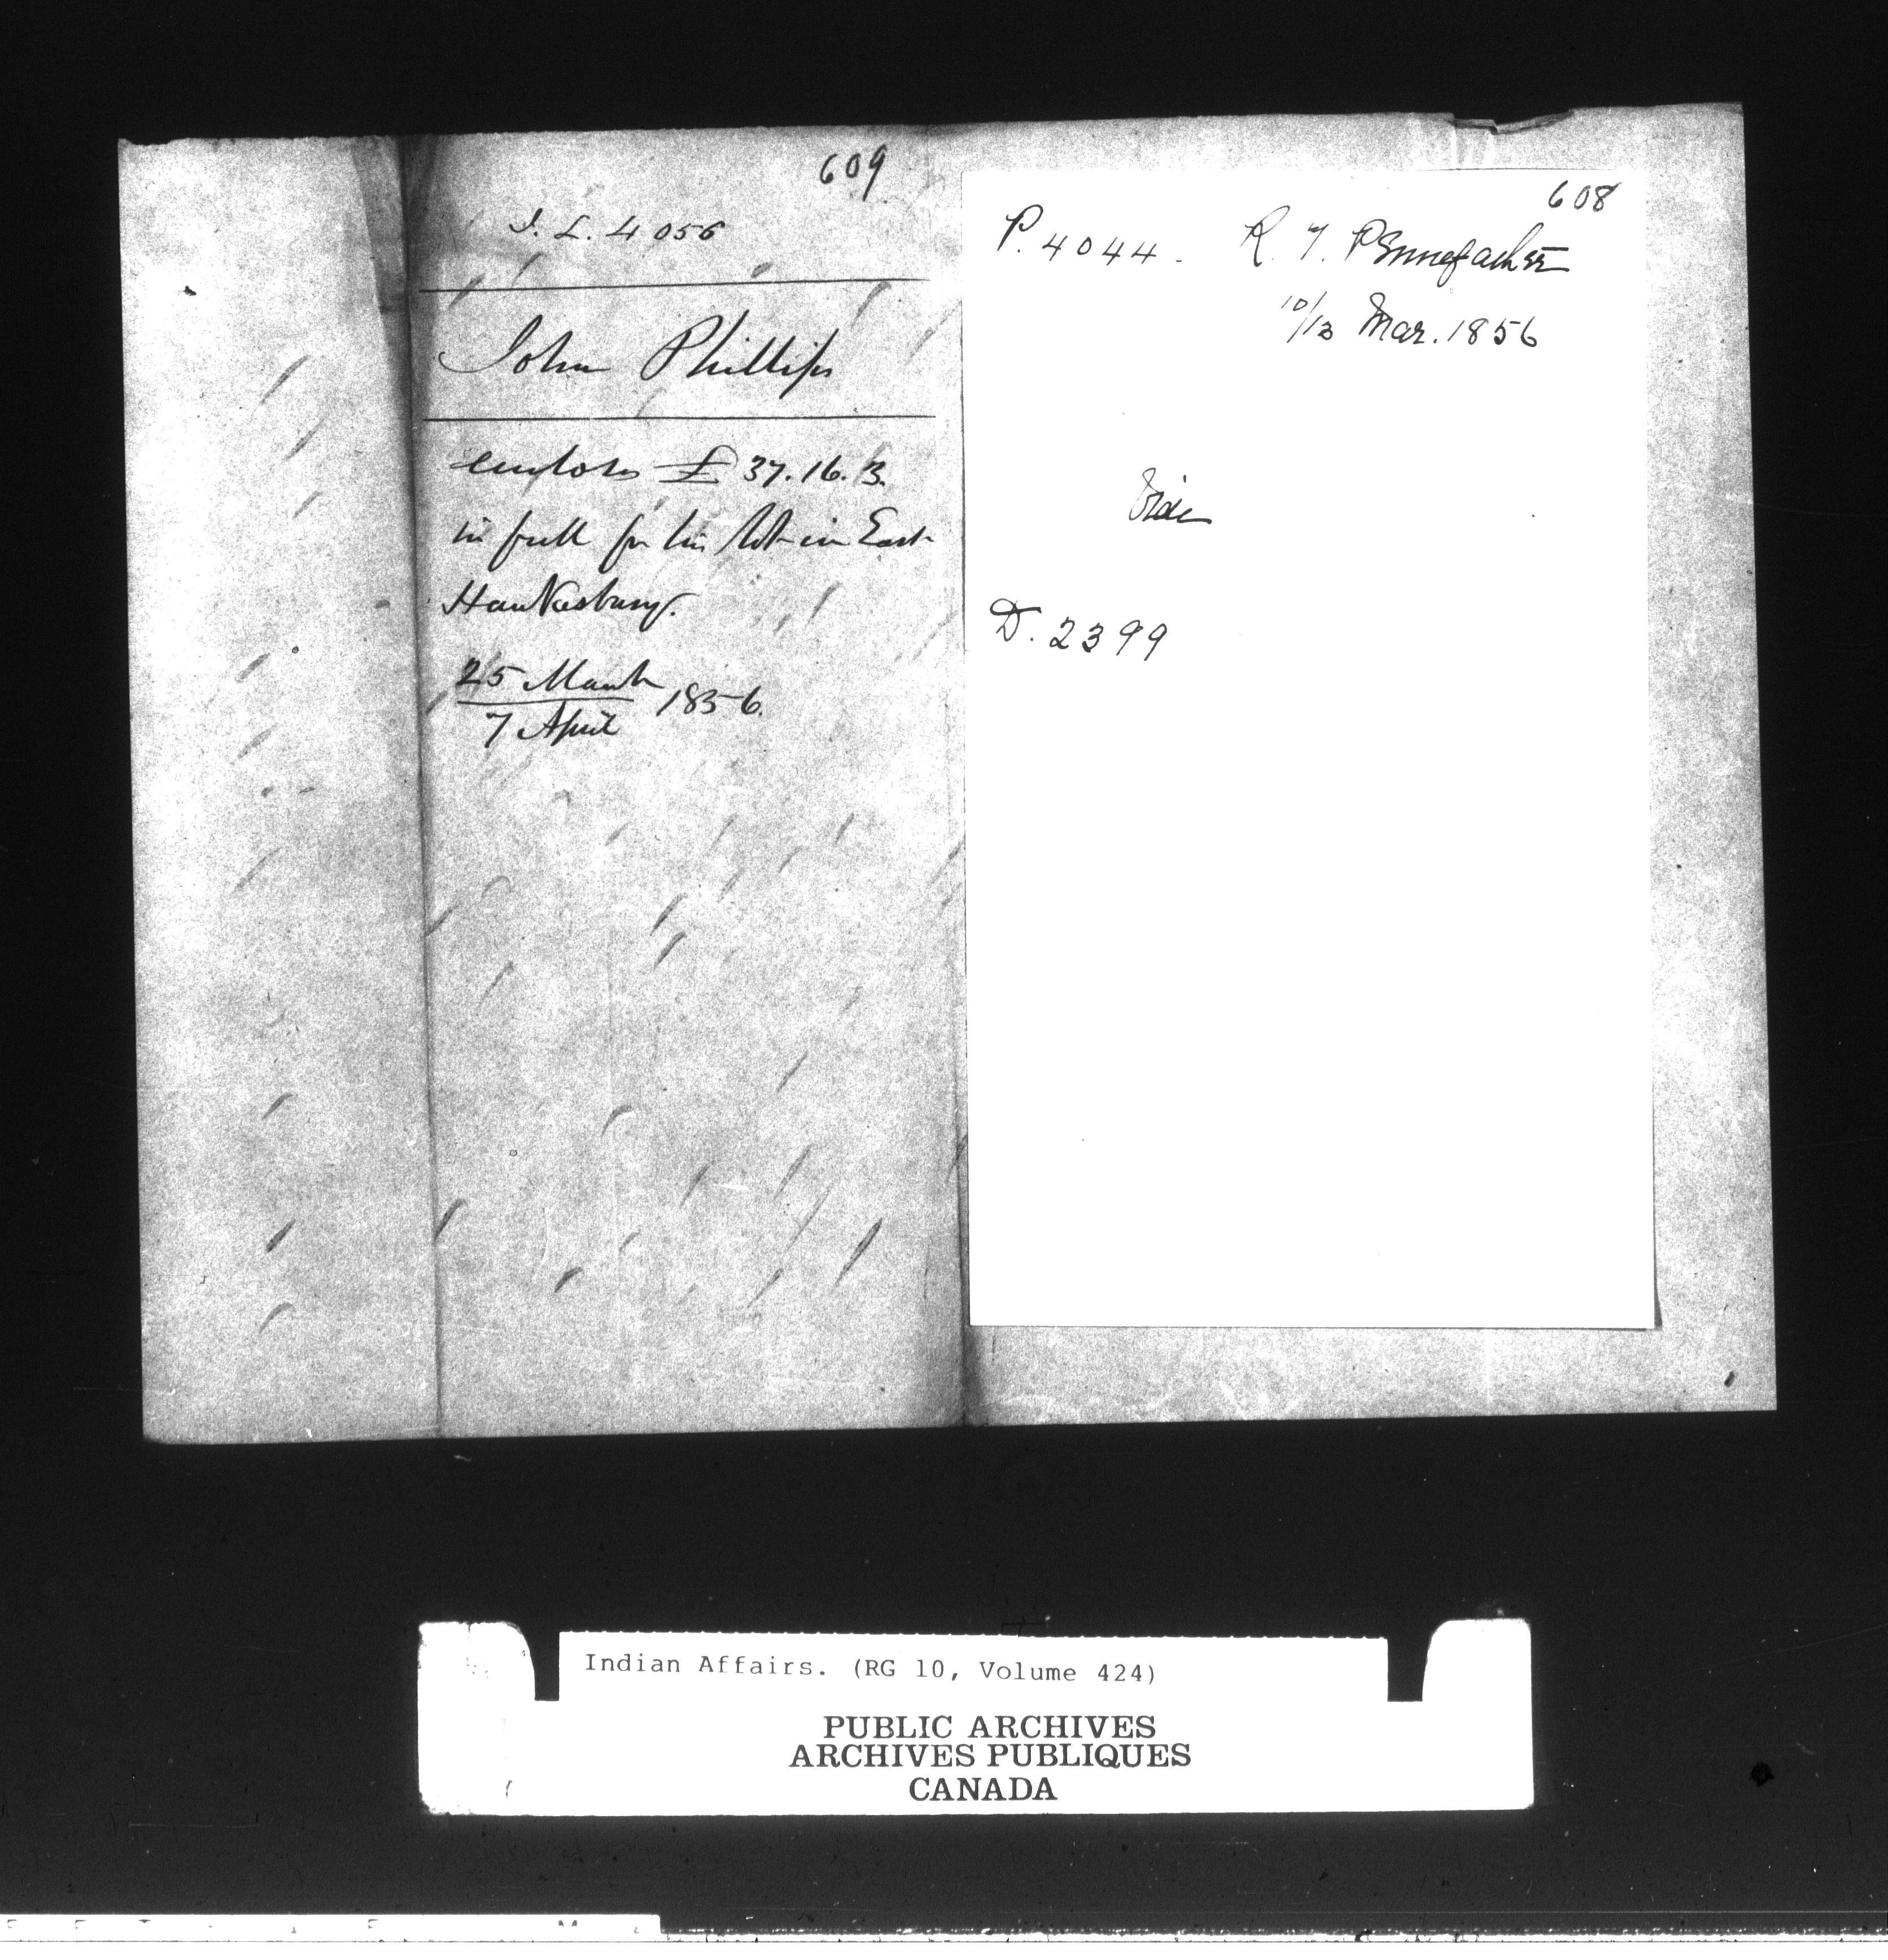 609
I. L. 4056
John Phillips
encloses £37.16.3.
in full for his lot in East
Hawkesbury.
25 March
7 April 1856.
608
P. 4044. R. T. Pennefather
10/13 Mar. 1856
Vide
D. 2399
Indian Affairs. (RG 10, Volume 424)
PUBLIC ARCHIVES
ARCHIVES PUBLIQUES
CANADA